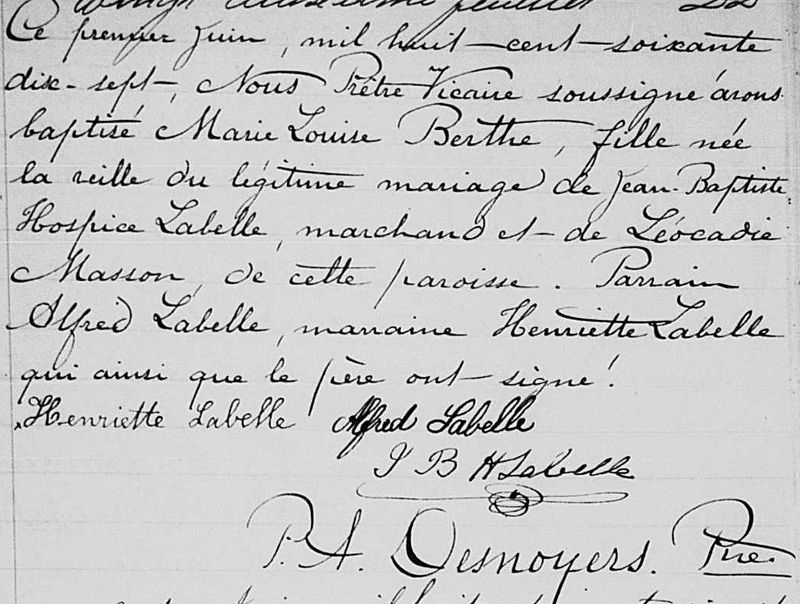 feuillet 22
Ce premier juin, mil huit-cent-soixante
dix-sept, Nous Prêtre Vicaire soussigné avons
baptisé Marie Louise Berthe, fille née
la veille du légitime mariage de Jean-Baptiste
Hospice Labelle, marchand et de Léocadie
Masson, de cette paroisse. Parrain
Alfred Labelle, marraine Henriette Labelle
qui ainsi que le père ont signé.
Henriette Labelle Alfred Labelle
J B H Labelle
P. A. Desnoyers. Ptre